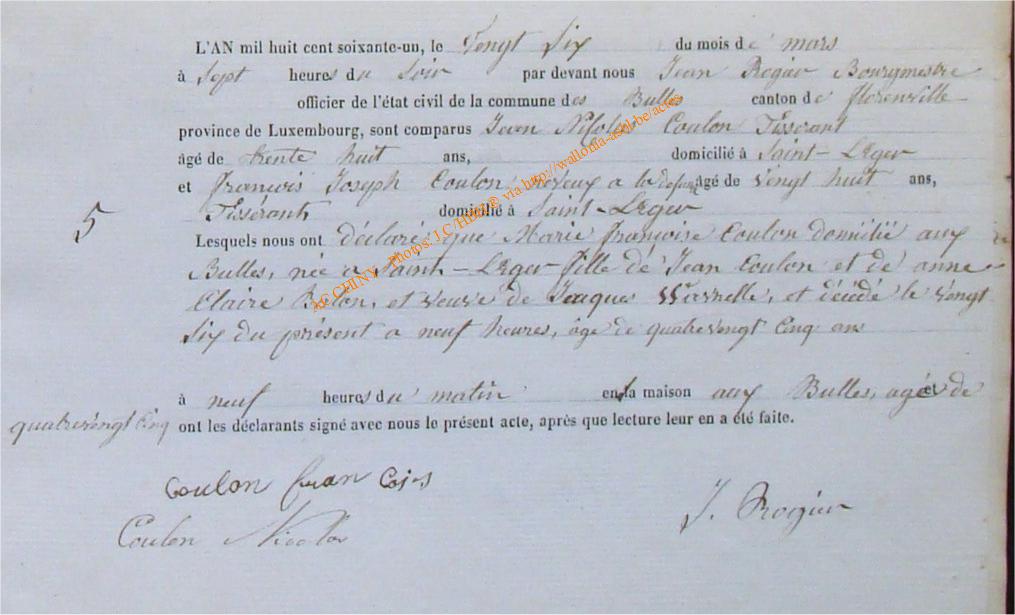 L'AN mil huit cent soixante-un, le Vengt Six du mois de mars
à Sept heures du Soir par devant nous Jean Rogier Bourgmestre
officier de l'état civil de la commune des Bulles canton de florenville
province de Luxembourg, sont comparus Jean Nicolas Coulon Tisserant
âgé de trente huit ans, domicilié à Saint-Leger
et françois Joseph Coulon neveux a la defunte âgé de vengt huit ans,
Tisserant domicilié à Saint-Leger
5
Lesquels nous ont déclaré que Marie françoise Coulon domicilié aux
Bulles, née a Saint-Leger fille de Jean Coulon et de anne
Claire Belon, et veuve de Jaques Warnelle, et décédé le vengt
Six du présent a neuf heures, âge de quatrevengt Cinq ans
à neuf heures du matin en la maison aux Bulles, agé de et
quatrevengt Cinq ont les déclarants signé avec nous le présent acte, après que lecture leur en a été faite.
Coulon fran Cois
J. Rogier
Coulon Nicolas
AC CHINY Photos: J.C/HBM © via http://wallonia-asbl.be/actes